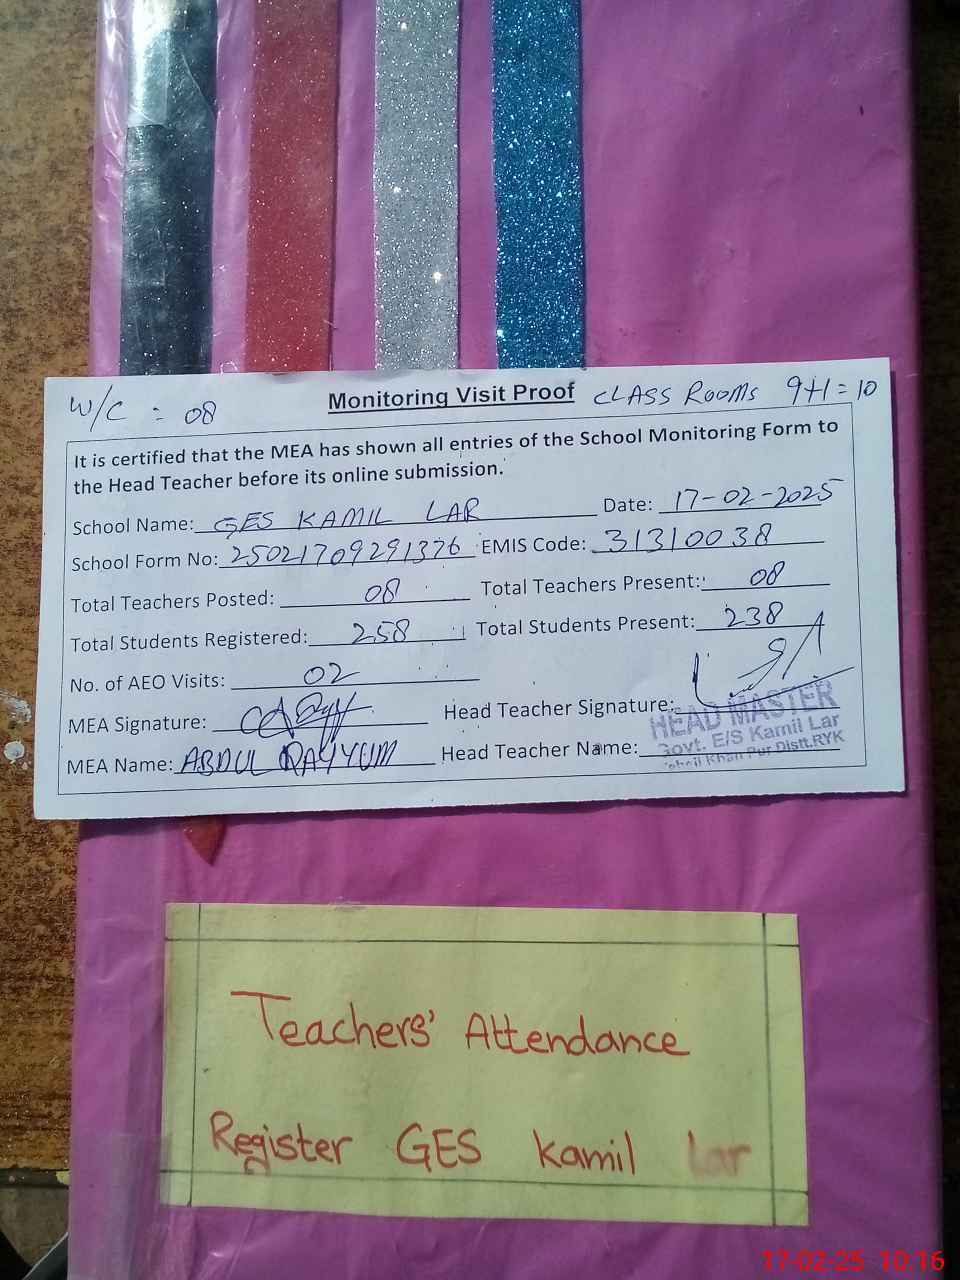 W/C = 08 Monitoring Visit Proof CLASS ROOMS 9+1=10
It is certified that the MEA has shown all entries of the School Monitoring Form to
the Head Teacher before its online submission.
School Name: GES KAMIL LAR Date: 17-02-2025
School Form No: 25021709291376 EMIS Code: 31310038
Total Teachers Posted: 08 Total Teachers Present: 08
Total Students Registered: 258 Total Students Present: 238
No. of AEO Visits: 02
MEA Signature: Head Teacher Signature:
HEAD MASTER
Govt. E/S Kamil Lar
Tehsil Khan Pur Distt.RYK
MEA Name: ABDUL QAYYUM Head Teacher Name:
Teachers' Attendance
Register GES Kamil Lar
17-02-25 10:16